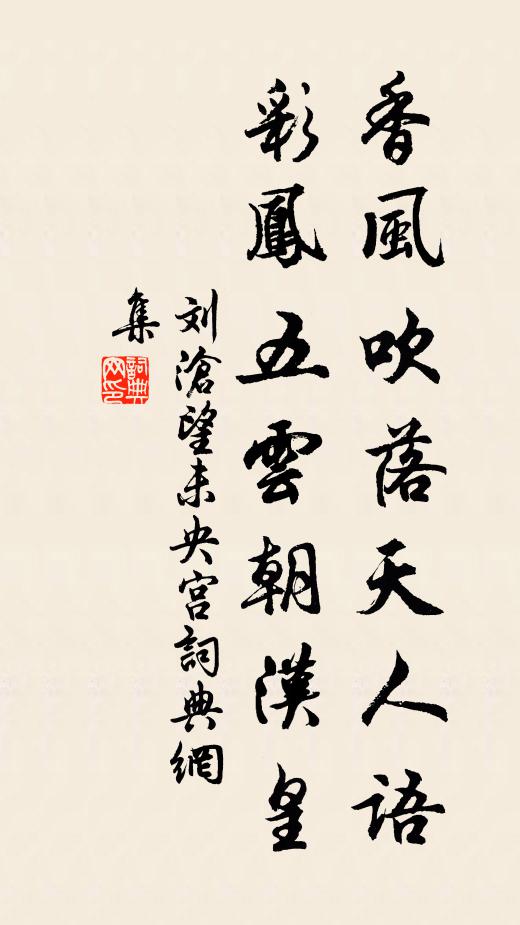 香風吹落天人语
彩鳳五雲朝漢皇
刘滄望未央宫詞典網
集
詞典
网印